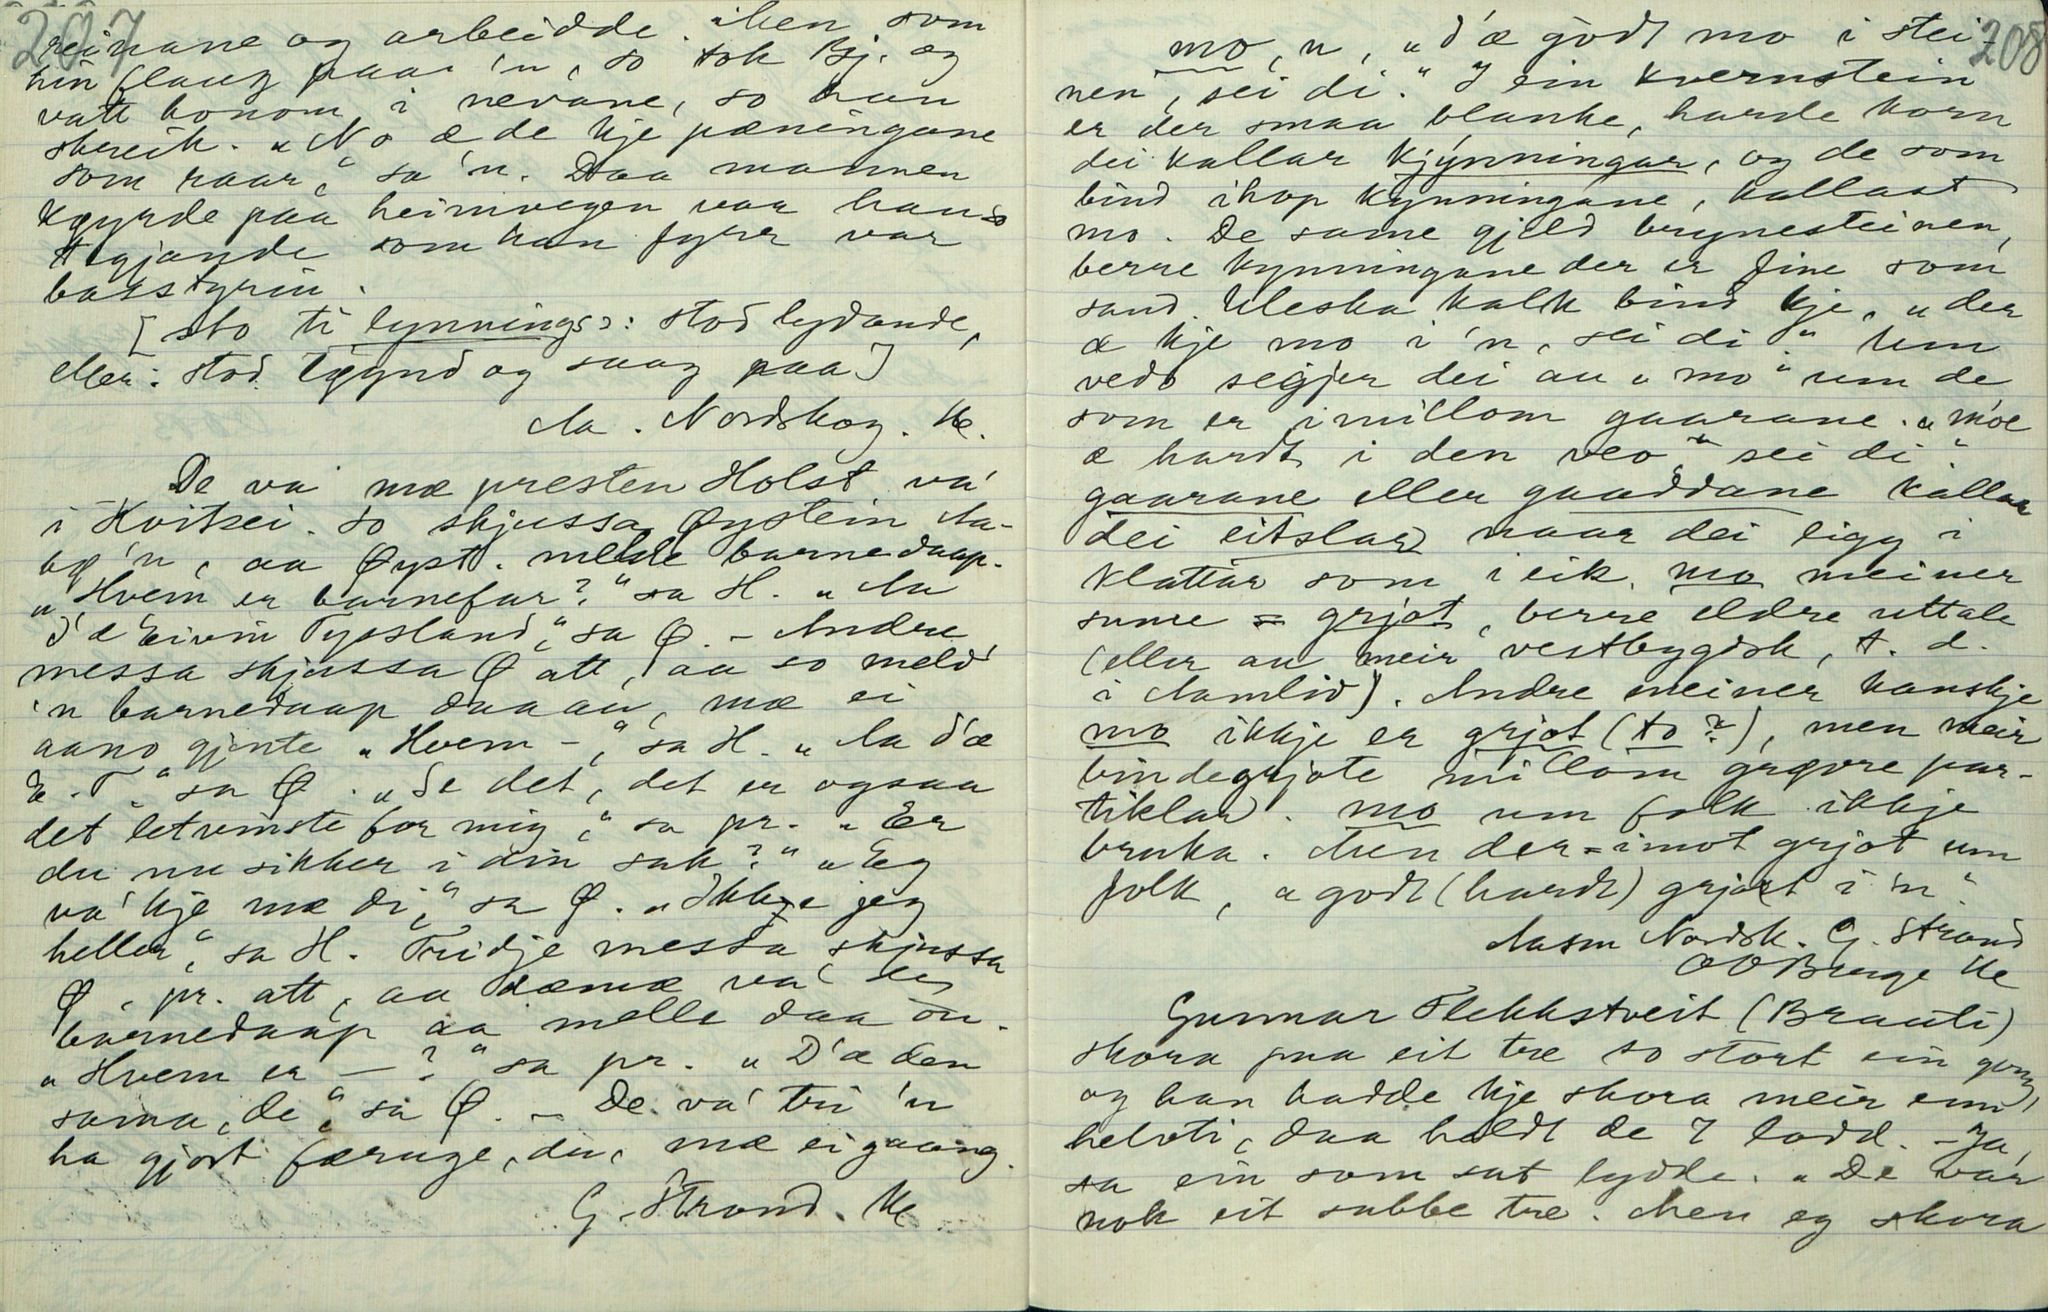 207
reinane og arbeidde. Men som
hin flaug paa 'n, so tok Bj. og
vatt honom i nevane, so han
skreik. „No æ de kje pæningane
som raar," sa 'n. Daa mannen
kjøyrde paa heimvegen var han so
tigjande som han fyrr var
basstyrin.
[sto ti lynnings ɔ: stod lydande,
eller: stod løynd og saag paa]
Aa. Nordskog. Kv.
De va mæ presten Holst va'
i Kvitsei. So skjussa Øystein Aa-
'n, aa Øyst. melde barnedaap.
„Hvem er barnefar?" sa H. „Aa
d'æ Eivin Typsland," sa Ø. – Andre
messa skjussa Ø att, aa so meld
'n barnedaap daa au, mæ ei
aano gjente „Hvem –," sa H. „Aa d'æ
E. T." sa Ø. „Se det, det er ogsaa
det letvinste for mig," sa pr. „Er
du nu sikker i din sak?" „Eg
va' kje mæ di," sa Ø. „Ikkje jeg
heller," sa H. Tridje messa skjussa
Ø. pr. att, aa dæmæ va' der
barnedaap aa melle daa òu.
„Hvem er –?" sa pr. „D'æ den
sama, de," sa Ø. – De va' tri 'n
ha gjort færuge, du, mæ ei gaang.
G. Strond. Kv.
208
mo, n, „d'æ godt mo i stei-
nen, sei di." I ein kvernstein
er der smaa blanke, harde korn
dei kallar kjynningar, og de som
bind ihop kynningane, kallast
mo. De same gjeld brynesteinen,
berre kynningane der er fine som
sand. Uleska kalk bind kje, „der
æ kje mo i 'n, sei di." Um
vedo segjer dei au „mo" um de
som er imillom gaarane. „Moe
æ hardt i den veo" sei di".
gaarane eller gaaddane kallar
dei eitslar naar dei ligg i
klattar som i eik. mo meiner
sume = grjot, berre eldre uttale
(eller au meir vestbygdsk, t. d.
i Aamlid). Andre meiner kanskje
mo ikkje er grjot (to?), men meir
bindegrjote millom grøvre par-
tiklar. mo um folk ikkje
bruka. Men der=imot grjot um
folk, „godt (hardt) grjot i 'n".
Aasm Nordsk. G. Strond
OOBerge Kv
Gunnar Flekkstveit (Brauti)
skora paa eit tre so stort ein gong,
og han hadde kje skora meir enn
helvti, daa heldt de 7 lodd. – Ja,
sa ein som sat lydde. „De var
nok eit subbe tre. Men eg skora